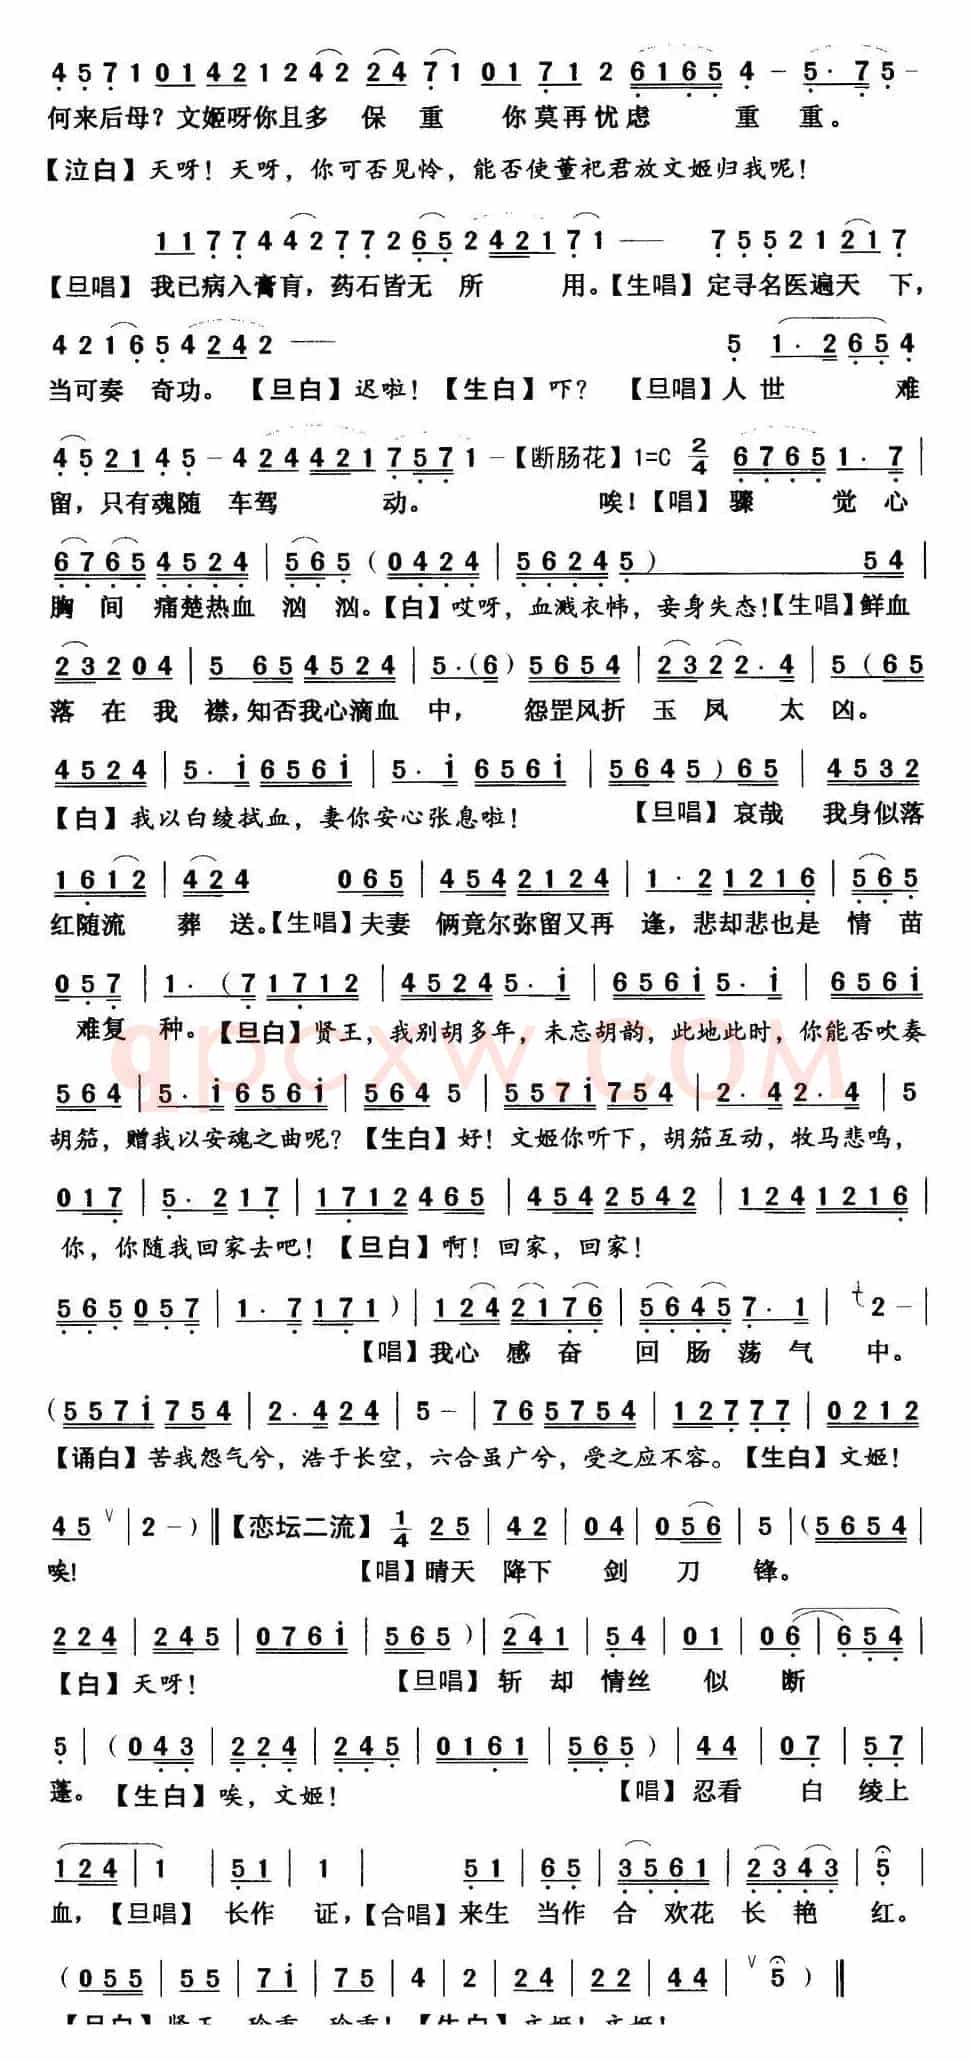 4 5 7 1 0 1 4 2 1 2 4 2 2 4 7 1 0 1 7 1 2 6 1 6 5 4 – 5 · 7 5 –
何来后母？文姬呀你且多 保 重 你莫再忧虑 重 重。
【泣白】天呀！天呀，你可否见怜，能否使董祀君放文姬归我呢！
1 1 7 7 4 4 2 7 7 2 6 5 2 4 2 1 7 1 —— 7 5 5 2 1 2 1 7
【旦唱】我已病入膏肓，药石皆无 所 用。【生唱】定寻名医遍天 下，
4 2 1 6 5 4 2 4 2 —— 5 1 · 2 6 5 4
当可奏 奇功。【旦白】迟啦！【生白】吓？ 【旦唱】人 世 难
4 5 2 1 4 5 – 4 2 4 4 2 1 7 5 7 1 –【断肠花】1=C 2/4 6 7 6 5 1 · 7 |
留，只有魂随 车驾 动。 唉！【唱】骤 觉 心
6 7 6 5 4 5 2 4 | 5 6 5 ( 0 4 2 4 | 5 6 2 4 5 ) 5 4 |
胸 间 痛楚热血 汹 汹。【白】哎呀，血溅衣帏，妾身失态！【生唱】鲜血
2 3 2 0 4 | 5 6 5 4 5 2 4 | 5 · ( 6 ) 5 6 5 4 | 2 3 2 2 · 4 | 5 ( 6 5
落 在 我 襟，知否我心滴血 中， 怨罡风折 玉 凤 太 凶。
4 5 2 4 | 5 · i 6 5 6 i | 5 · i 6 5 6 i | 5 6 4 5 ) 6 5 | 4 5 3 2
【白】我以白绫拭血，妻你安心张息啦！ 【旦唱】哀哉 我身似落
1 6 1 2 | 4 2 4 0 6 5 | 4 5 4 2 1 2 4 | 1 · 2 1 2 1 6 | 5 6 5
红随流 葬 送。【生唱】夫妻 俩竟尔弥留又再 逢，悲却悲也是 情 苗
0 5 7 | 1 · ( 7 1 7 1 2 | 4 5 2 4 5 · i | 6 5 6 i 5 · i | 6 5 6 i
难复 种。【旦白】贤王，我别胡多年，未忘胡韵，此地此时，你能否吹奏
qpcxw.COM
5 6 4 | 5 · i 6 5 6 i | 5 6 4 5 | 5 5 7 i 7 5 4 | 2 · 4 2 · 4 | 5
胡笳，赠我以安魂之曲呢？【生白】好！文姬你听下，胡笳互动，牧马悲鸣，
0 1 7 | 5 · 2 1 7 | 1 7 1 2 4 6 5 | 4 5 4 2 5 4 2 | 1 2 4 1 2 1 6 |
你，你随我回家去吧！【旦白】啊！回家，回家！
5 6 5 0 5 7 | 1 · 7 1 7 1 ) | 1 2 4 2 1 7 6 | 5 6 4 5 7 · 1 | 2 – |
【唱】我心 感 奋 回 肠 荡 气 中。
( 5 5 7 i 7 5 4 | 2 · 4 2 4 | 5 – | 7 6 5 7 5 4 | 1 2 7 7 7 | 0 2 1 2
【诵白】苦我怨气兮，浩于长空，六合虽广兮，受之应不容。【生白】文姬！
4 5 ∨ | 2 – ) ‖【恋坛二流】1/4 2 5 | 4 2 | 0 4 | 0 5 6 | 5 | ( 5 6 5 4 |
唉! 【唱】晴天 降下 剑 刀 锋。
2 2 4 | 2 4 5 | 0 7 6 i | 5 6 5 ) | 2 4 1 | 5 4 | 0 1 | 0 6 | 6 5 4 |
【白】天呀！ 【旦唱】斩 却 情丝 似 断
5 | ( 0 4 3 | 2 2 4 | 2 4 5 | 0 1 6 1 | 5 6 5 ) | 4 4 | 0 7 | 5 7 |
蓬。【生白】唉，文姬！ 【唱】忍看 白 绫上
1 2 4 | 1 | 5 1 | 1 | 5 1 | 6 5 | 3 5 6 1 | 2 3 4 3 | 5 |
血，【旦唱】 长作 证，【合唱】来生 当作 合 欢花 长 艳 红。
( 0 5 5 | 5 5 | 7 i | 7 5 | 4 | 2 | 2 4 | 2 2 | 4 4 | ∨ 5 ) ‖
【旦白】贤王，珍重，珍重！【生白】文姬！文姬！